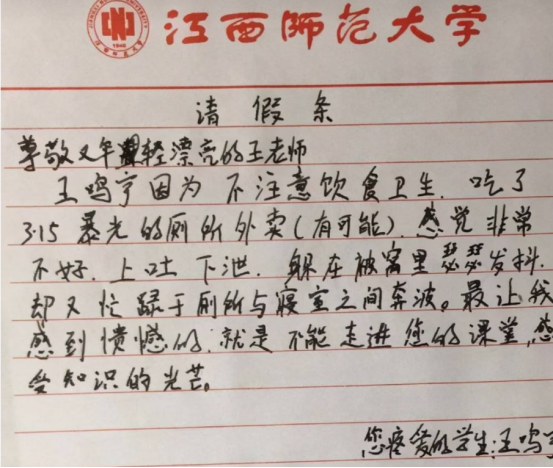 江西师范大学
1940
请假条
尊敬又年轻漂亮的王老师
王鸣亨因为不注意饮食卫生.吃了
3.15暴光的厕所外卖(有可能).感觉非常
不好.上吐下泄.躲在被窝里瑟瑟发抖.
却又忙碌于厕所与寝室之间奔波。最让我
感到愤憾的.就是不能走进您的课堂,感
受知识的光芒。
您疼爱的学生:王鸣亨